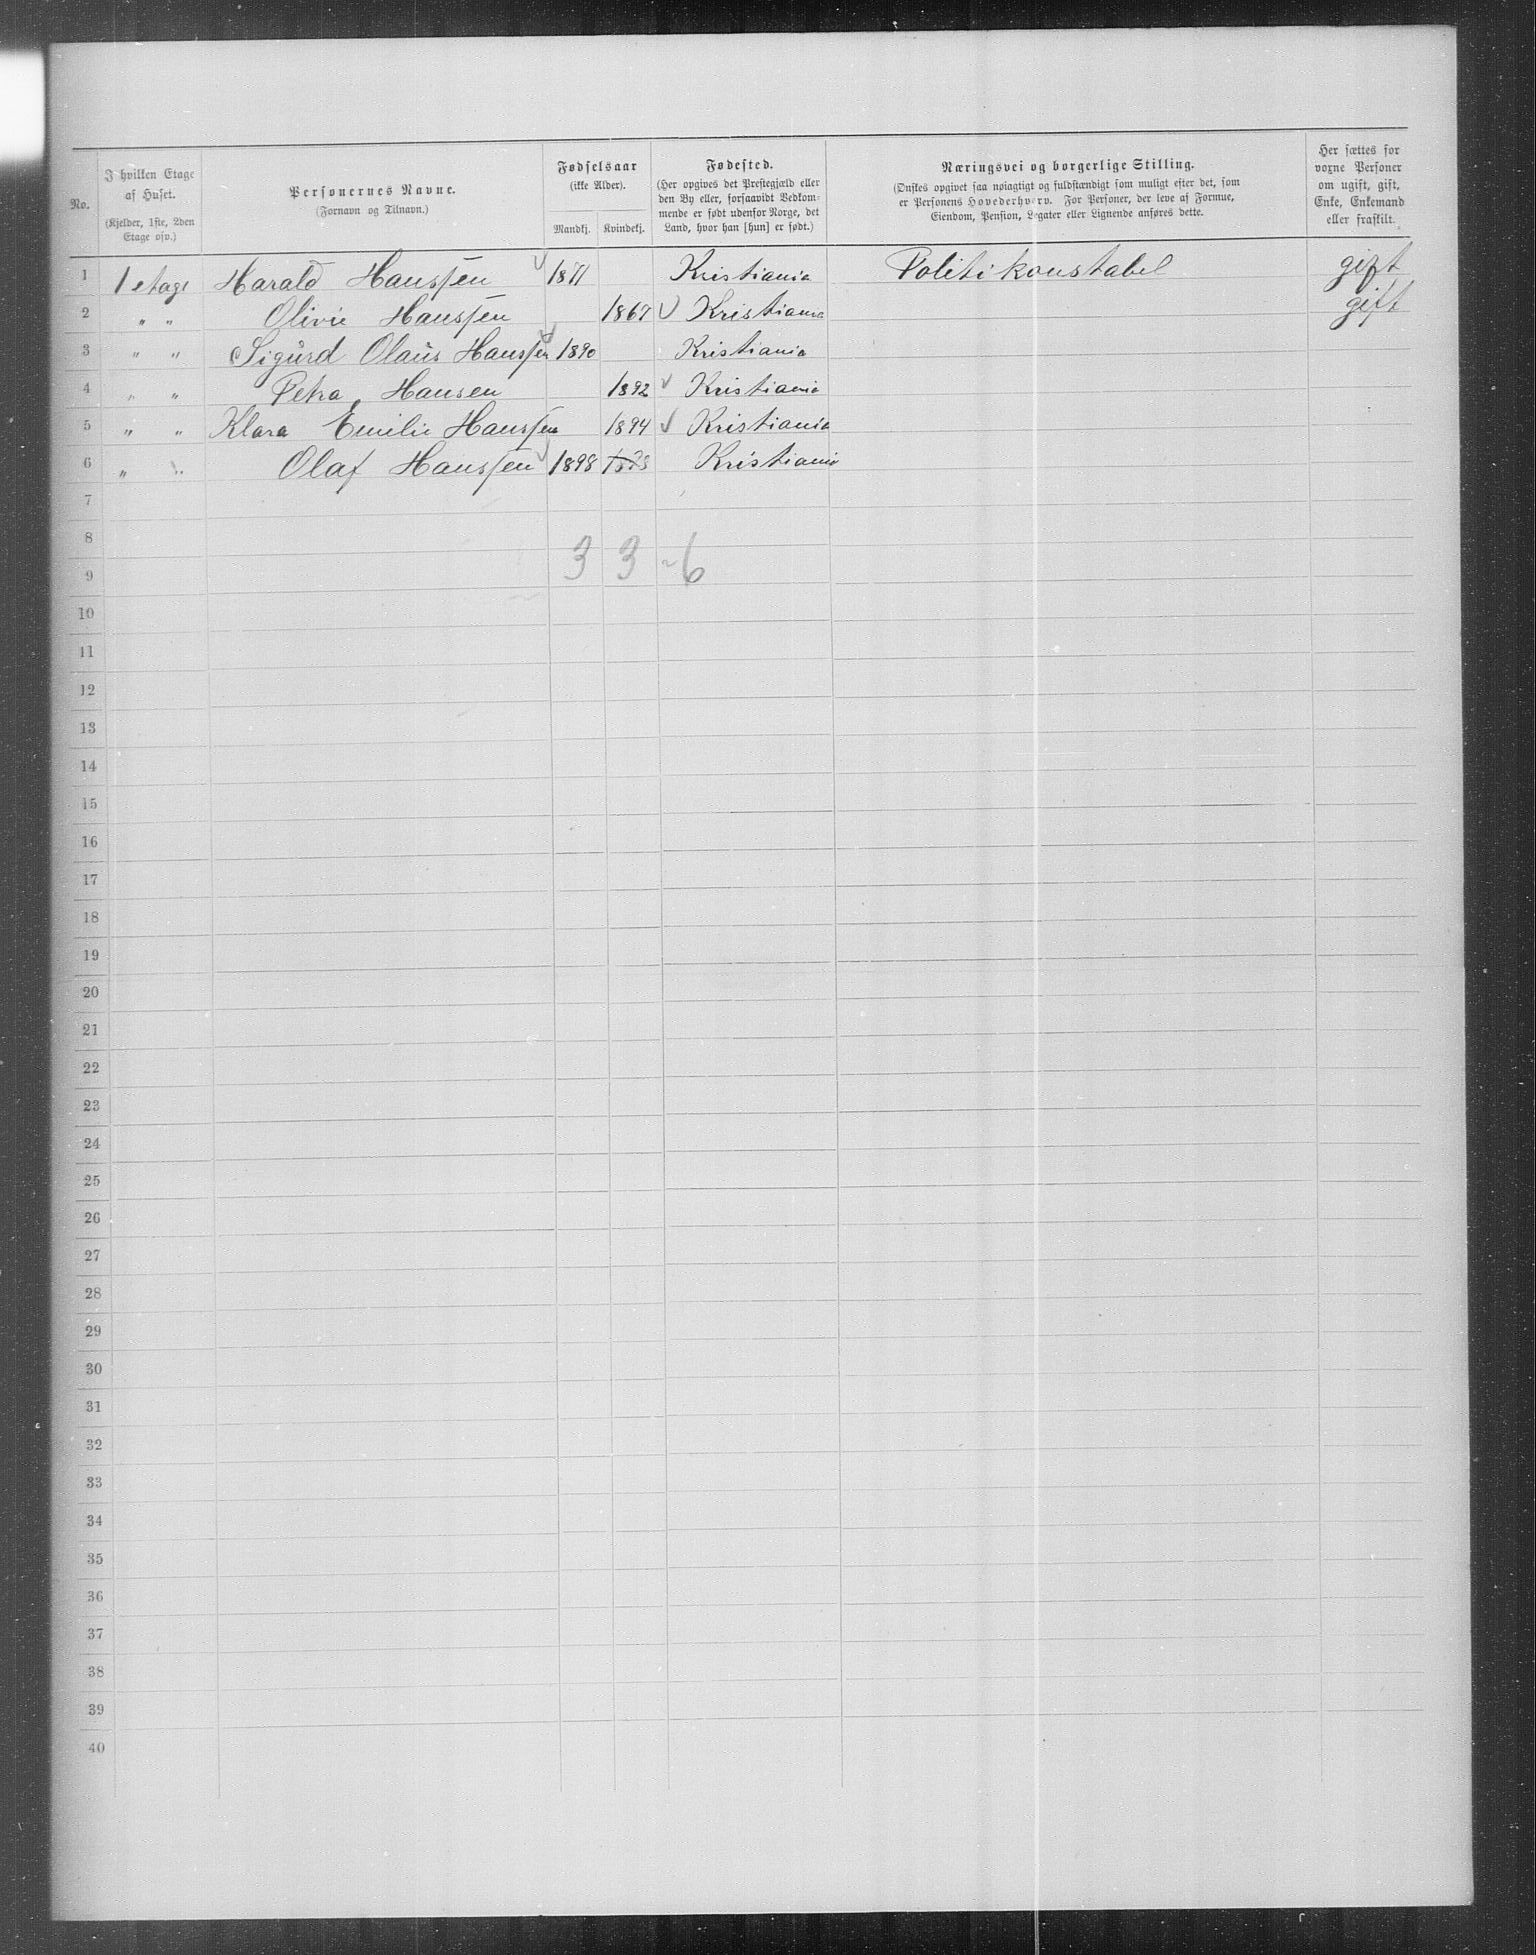 No.	I hvilken Etage af Huset. (Kjelder, 1ste, 2den Etage osv.)	Personernes Navne. (Fornavn og Tilnavn.)	Fødselsaar (ikke Alder). Mandkj.	Kvindekj.	Fødested. (Her opgives det Prestegjæld eller den By eller, forsaavidt Vedkommende er født udenfor Norge, det Land, hvor han [hun] er født.)	Næringsvei og borgerlige Stilling. (Ønskes opgivet saa nøiagtigt og fuldstændigt som muligt efter det, som er Personens Hovederhverv. For Personer, der leve af Formue, Eiendom, Pension, Legater eller Lignende anføres dette.	Her sættes for voxne Personer om ugift, gift, Enke, Enkemand eller fraskilt.
1	1 etage	Harald Hanssen	1871		Kristiania	Politikonstabel	gift
2	" "	Olivie Hanssen		1867	Kristiania		gift
3	" "	Sigurd Olaus Hanssen	1890		Kristiania
4	" "	Petra Hansen		1892	Kristiania
5	" "	Klara Emilie Hanssen		1894	Kristiania
6	" "	Olaf Hanssen	1898	1898	Kristiania
7
8
3 3 - 6
9
10
11
12
13
14
15
16
17
18
19
20
21
22
23
24
25
26
27
28
29
30
31
32
33
34
35
36
37
38
39
40